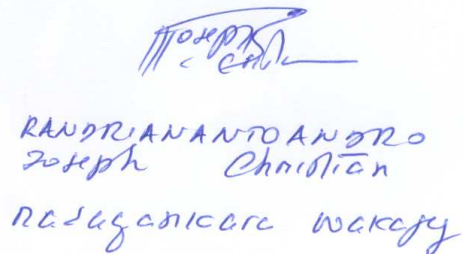 Joseph
RANDRIANANTOANDRO
Joseph Christian
Madagasikara wakajy